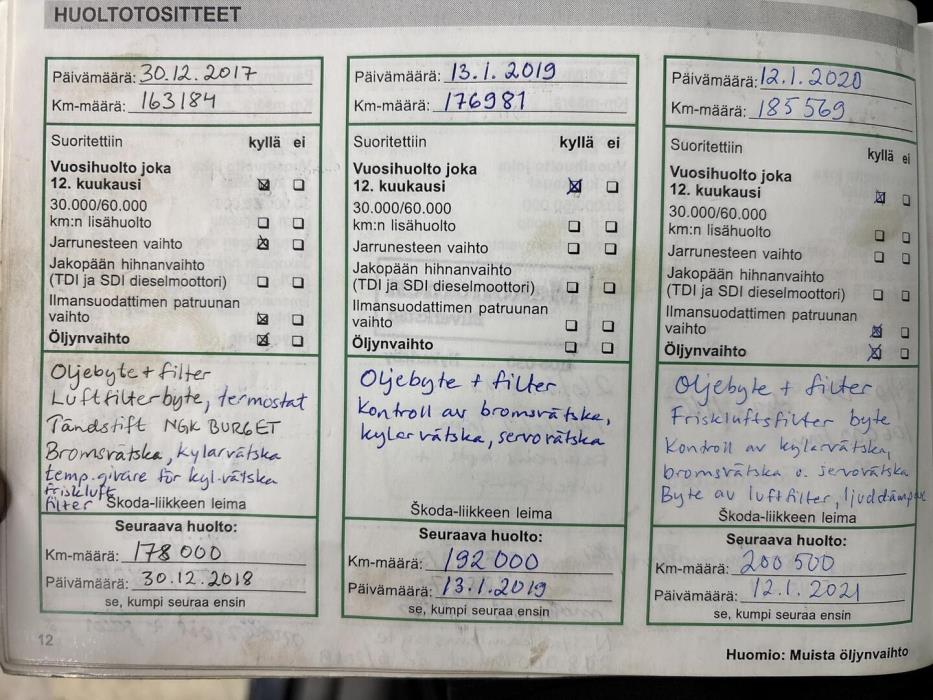 HUOLTOTOSITTEET
Päivämäärä: 30.12.2017
Km-määrä: 163184
Suoritettiin kyllä ei
Vuosihuolto joka
12. kuukausi
30.000/60.000
km:n lisähuolto
Jarrunesteen vaihto
Jakopään hihnanvaihto
(TDI ja SDI dieselmoottori)
Ilmansuodattimen patruunan
vaihto
Öljynvaihto
Oljebyte + filter
Luftfilterbyte, termostat
Tändstift NGK BURGET
Bromsvätska, kylarvätska
temp.givare för kyl.vätska
friskluft
filter Škoda-liikkeen leima
Seuraava huolto:
Km-määrä: 178 000
Päivämäärä: 30.12.2018
se, kumpi seuraa ensin
Päivämäärä: 13.1.2019
Km-määrä: 176981
Suoritettiin kyllä ei
Vuosihuolto joka
12. kuukausi
30.000/60.000
km:n lisähuolto
Jarrunesteen vaihto
Jakopään hihnanvaihto
(TDI ja SDI dieselmoottori)
Ilmansuodattimen patruunan
vaihto
Öljynvaihto
Oljebyte + filter
Kontroll av bromsvätska,
kylarvätska, servovätska
Škoda-liikkeen leima
Seuraava huolto:
Km-määrä: 192 000
Päivämäärä: 13.1.2019
se, kumpi seuraa ensin
Päivämäärä: 12.1.2020
Km-määrä: 185 569
Suoritettiin kyllä ei
Vuosihuolto joka
12. kuukausi
30.000/60.000
km:n lisähuolto
Jarrunesteen vaihto
Jakopään hihnanvaihto
(TDI ja SDI dieselmoottori)
Ilmansuodattimen patruunan
vaihto
Öljynvaihto
Oljebyte + filter
Friskluftsfilter byte
Kontroll av kylarvätska,
bromsvätska o. servovätska
Byte av luftfilter, ljuddämpare
Škoda-liikkeen leima
Seuraava huolto:
Km-määrä: 200 500
Päivämäärä: 12.1.2021
se, kumpi seuraa ensin
12
Huomio: Muista öljynvaihto